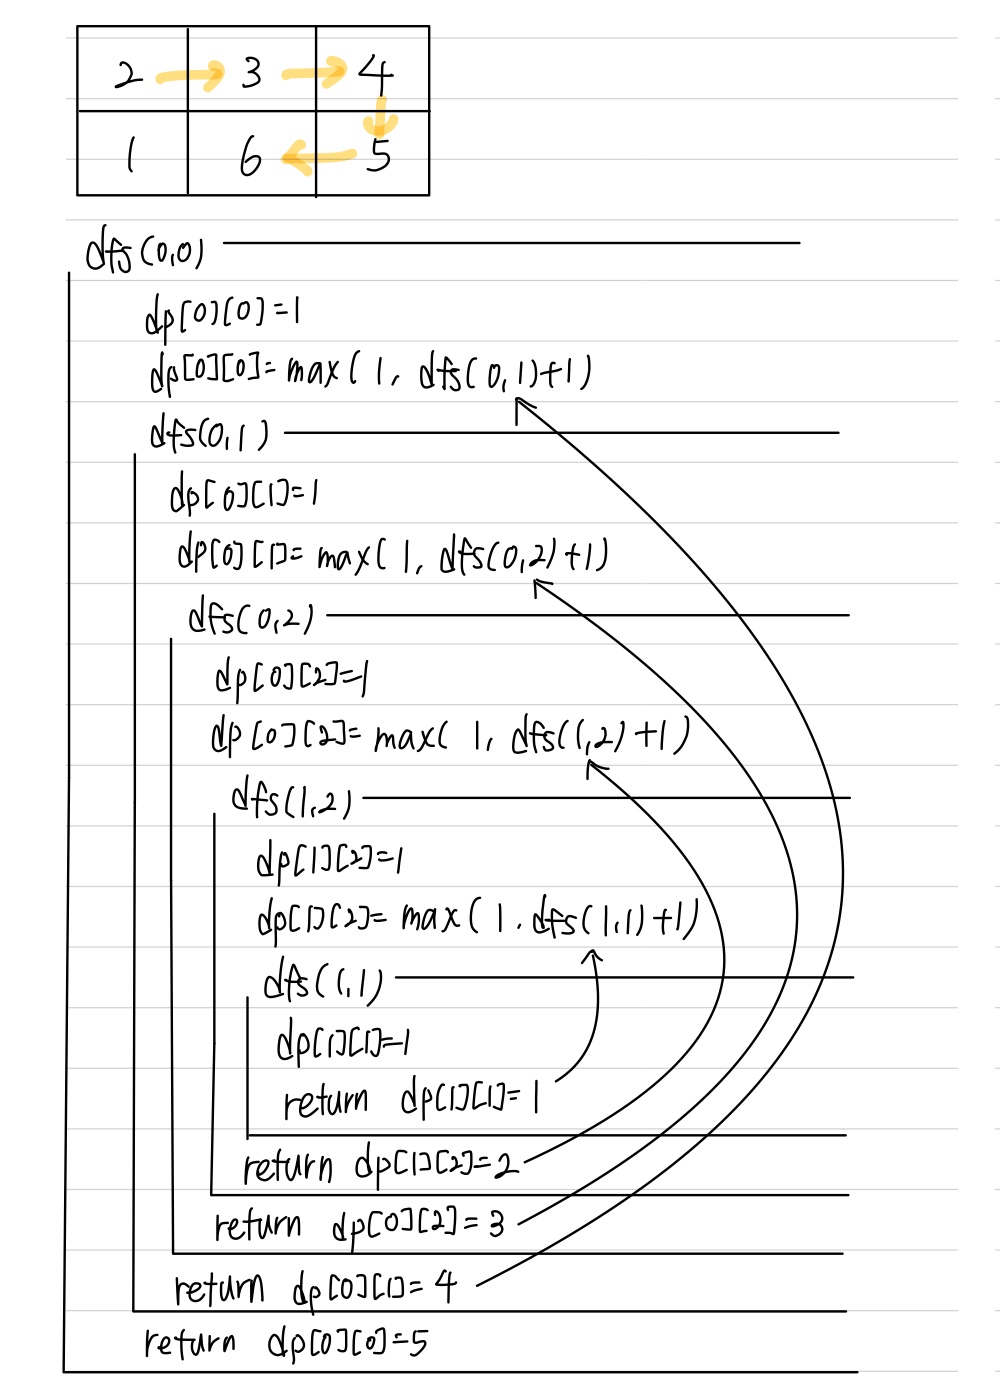 2 3 4
1 6 5
dfs(0,0)
dp[0][0]=1
dp[0][0]=max(1, dfs(0,1)+1)
dfs(0,1)
dp[0][1]=1
dp[0][1]=max(1, dfs(0,2)+1)
dfs(0,2)
dp[0][2]=1
dp[0][2]=max(1, dfs(1,2)+1)
dfs(1,2)
dp[1][2]=1
dp[1][2]=max(1, dfs(1,1)+1)
dfs(1,1)
dp[1][1]=1
return dp[1][1]=1
return dp[1][2]=2
return dp[0][2]=3
return dp[0][1]=4
return dp[0][0]=5